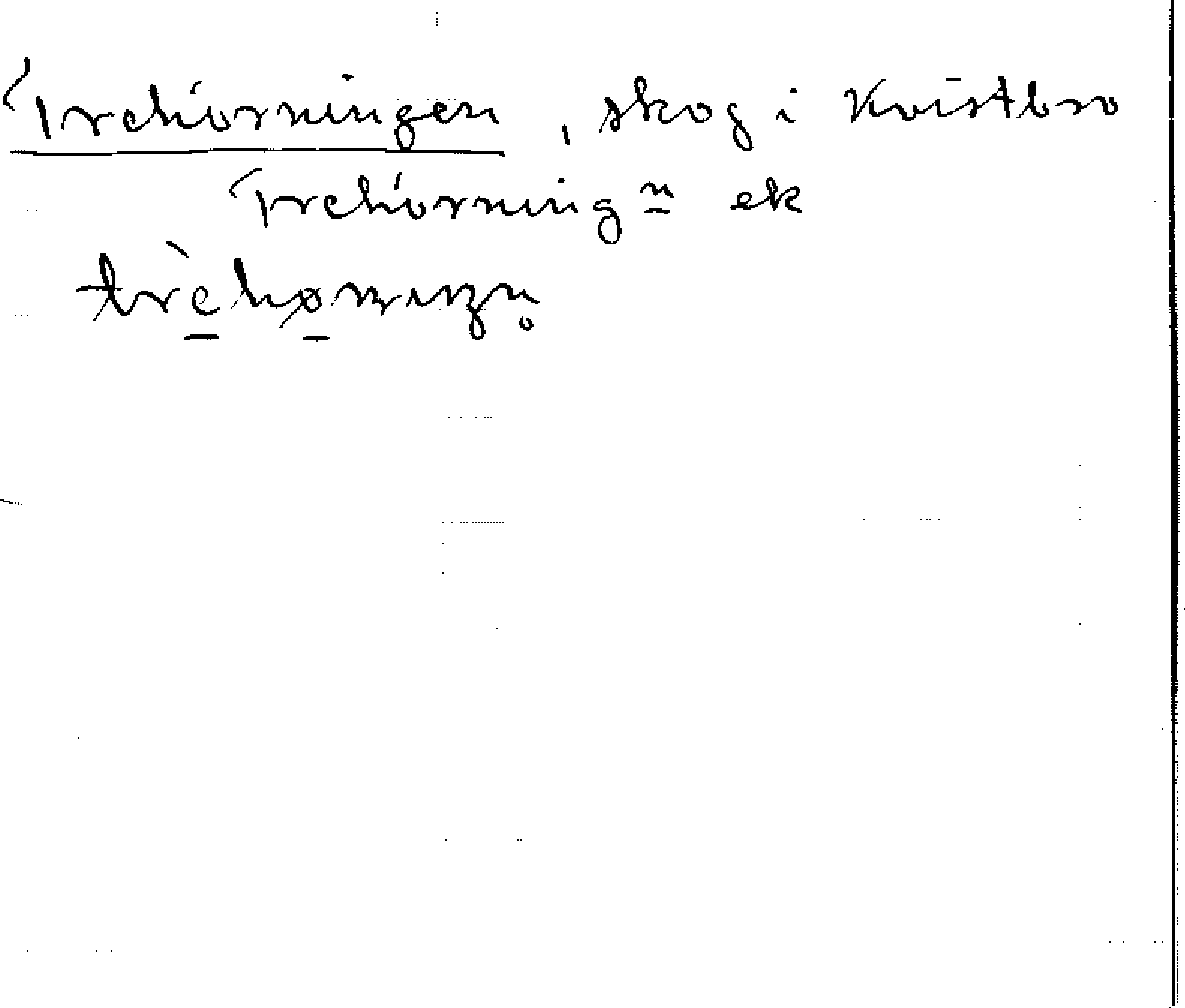 Trehörningen, skog i Kvistbro
Trehörningⁿ ek